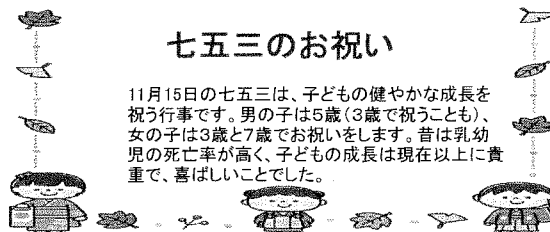 七五三のお祝い
11月15日の七五三は、子どもの健やかな成長を
祝う行事です。男の子は5歳（3歳で祝うことも）、
女の子は3歳と7歳でお祝いをします。昔は乳幼
児の死亡率が高く、子どもの成長は現在以上に貴
重で、喜ばしいことでした。